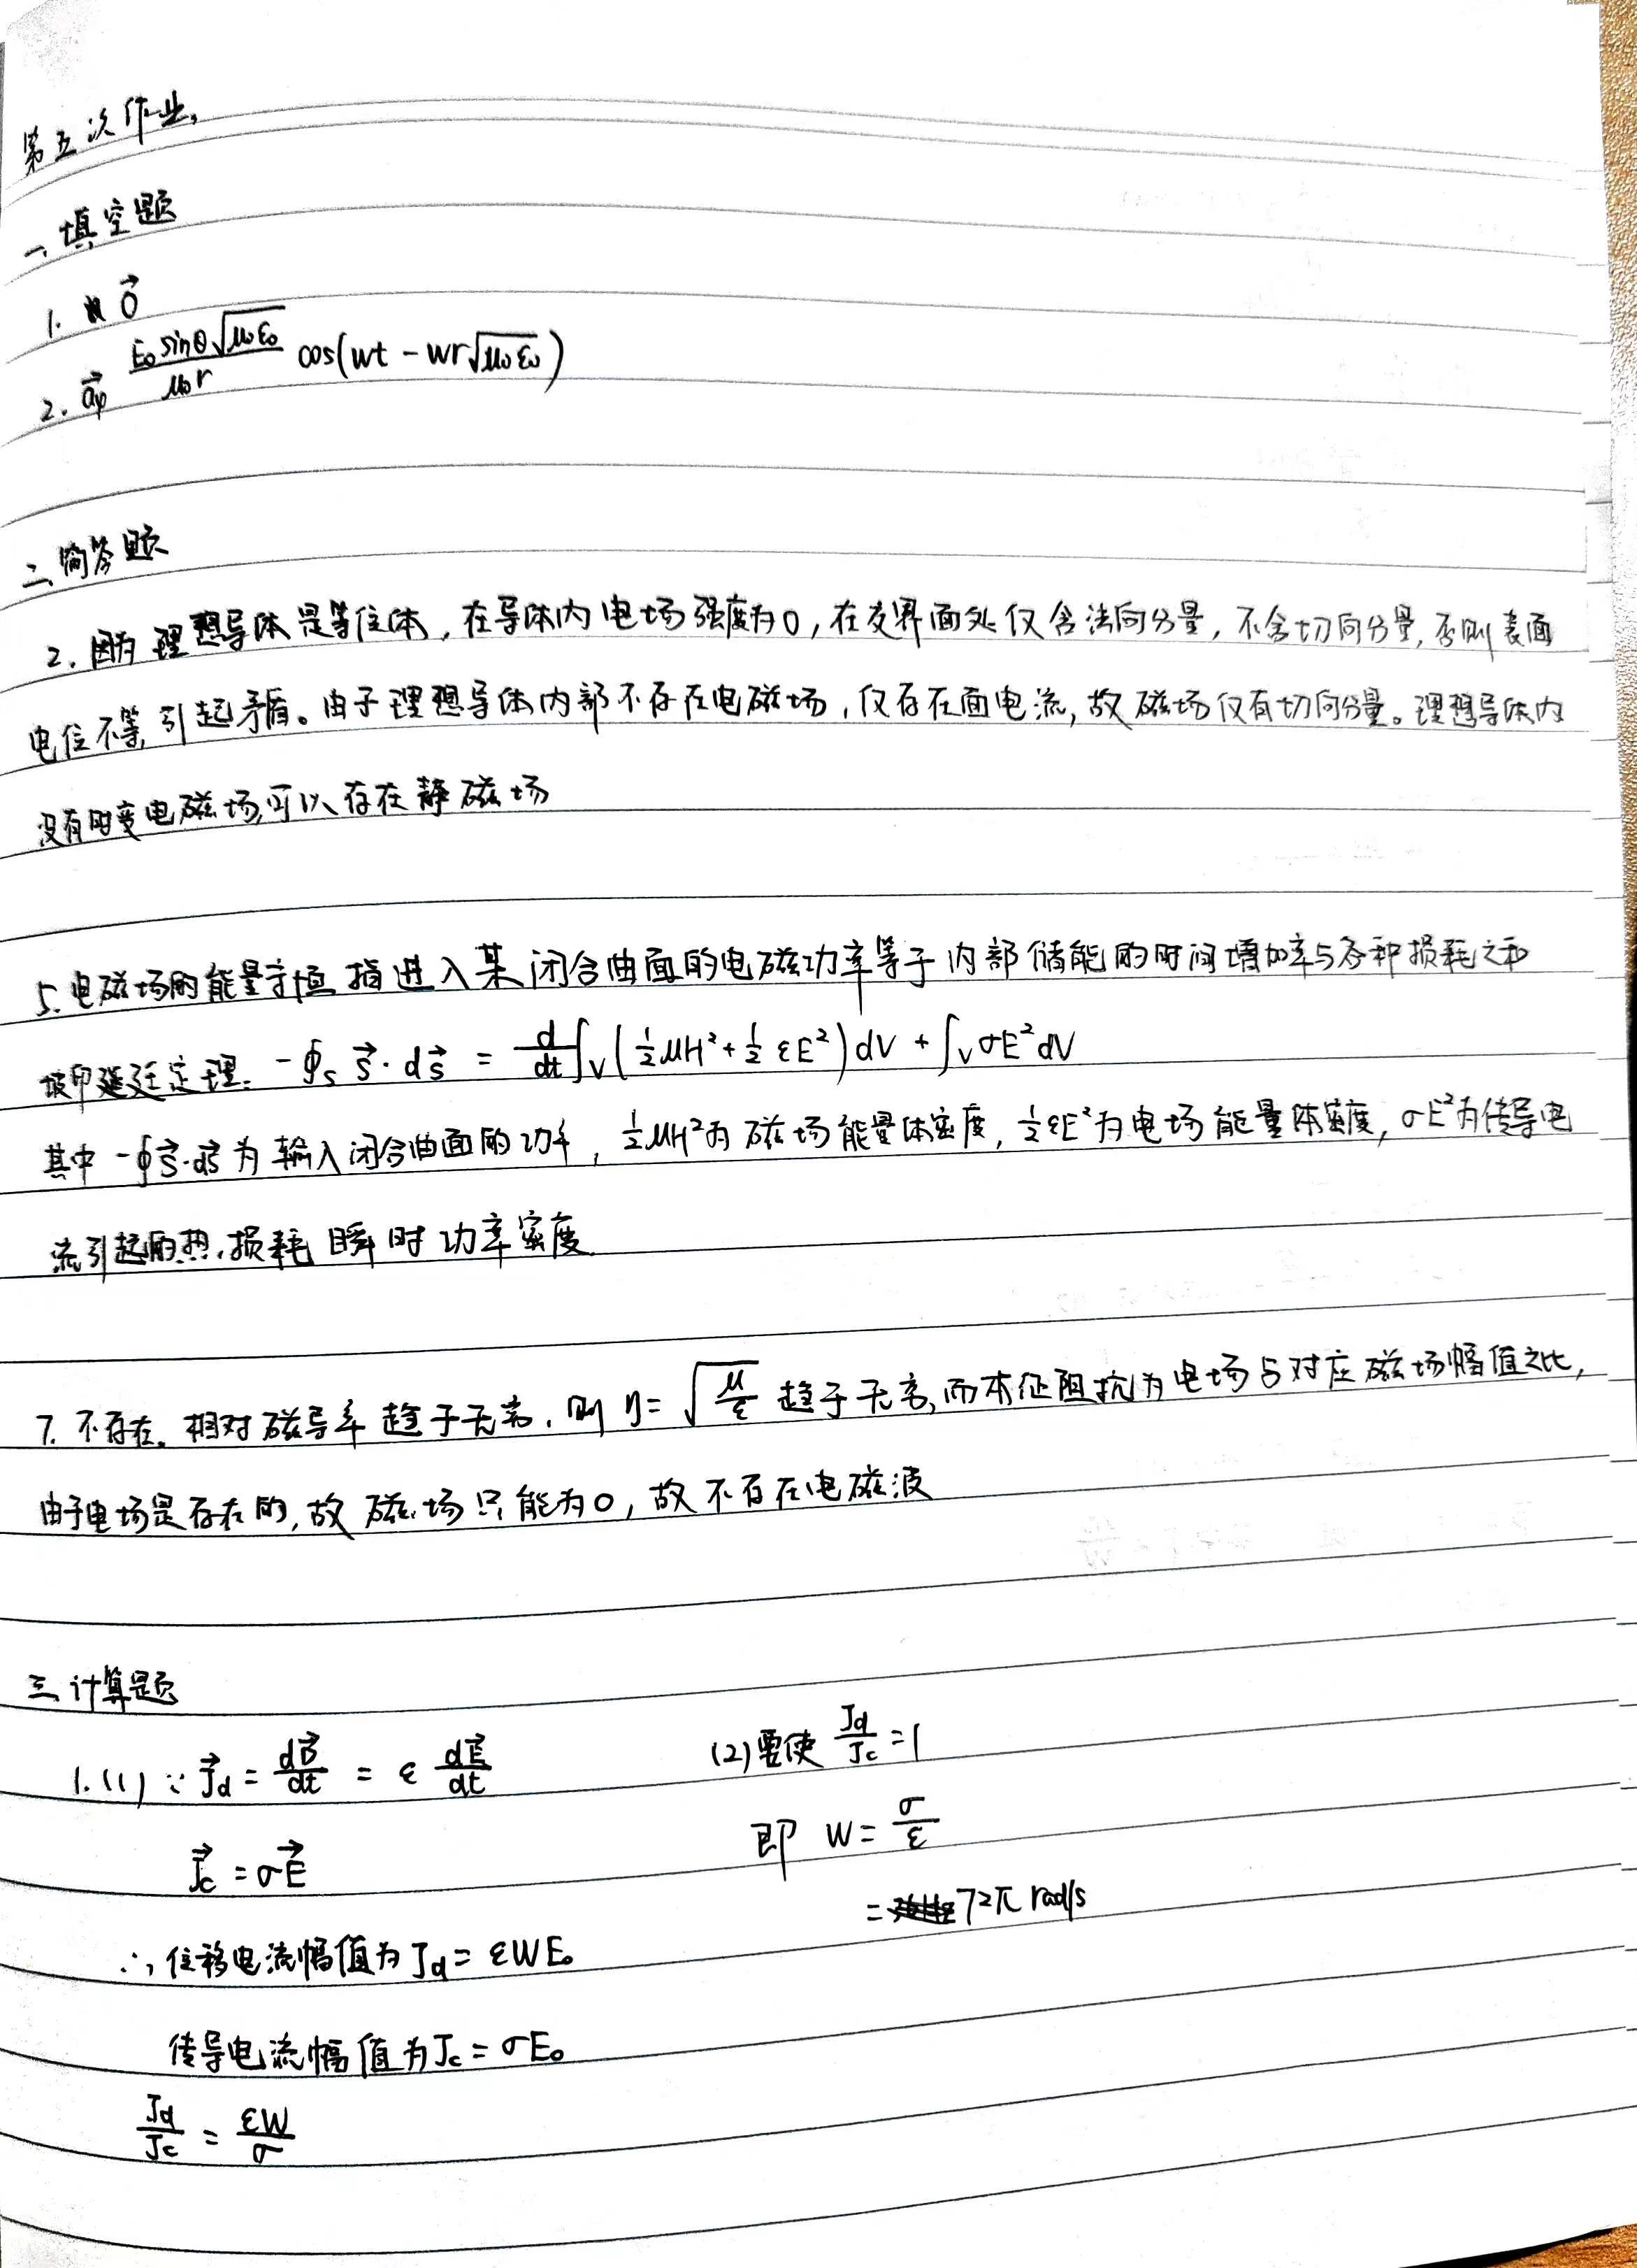 第五次作业
一、填空题
1. $\vec{0}$
2. $\vec{a}_\varphi \frac{E_0 \sin\theta \sqrt{\mu_0 \varepsilon_0}}{\mu_0 r} \cos(wt - wr\sqrt{\mu_0 \varepsilon_0})$
二、简答题
2. 因为理想导体是等位体，在导体内电场强度为0，在交界面处仅含法向分量，不含切向分量，否则表面
电位不等，引起矛盾。由于理想导体内部不存在电磁场，仅存在面电流，故磁场仅有切向分量。理想导体内
没有时变电磁场，可以存在静磁场
5. 电磁场的能量守恒指进入某闭合曲面的电磁功率等于内部储能的时间增加率与各种损耗之和
坡印廷定理: $-\oint_S \vec{S} \cdot d\vec{s} = \frac{d}{dt} \int_V (\frac{1}{2}\mu H^2 + \frac{1}{2}\varepsilon E^2) dV + \int_V \sigma E^2 dV$
其中 $-\oint \vec{S} \cdot d\vec{s}$ 为输入闭合曲面的功率，$\frac{1}{2}\mu H^2$ 为磁场能量体密度，$\frac{1}{2}\varepsilon E^2$ 为电场能量体密度，$\sigma E^2$ 为传导电
流引起的热损耗瞬时功率密度
7. 不存在。相对磁导率趋于无穷，则 $\eta = \sqrt{\frac{\mu}{\varepsilon}}$ 趋于无穷，而本征阻抗为电场与对应磁场幅值之比，
由于电场是存在的，故磁场只能为0，故不存在电磁波
三、计算题
1. (1) ∵ $\vec{J}_d = \frac{d\vec{D}}{dt} = \varepsilon \frac{d\vec{E}}{dt}$
$\vec{J}_c = \sigma \vec{E}$
∴ 位移电流幅值为 $J_d = \varepsilon W E_0$
传导电流幅值为 $J_c = \sigma E_0$
$\frac{J_d}{J_c} = \frac{\varepsilon W}{\sigma}$
(2) 要使 $\frac{J_d}{J_c} = 1$
即 $W = \frac{\sigma}{\varepsilon}$
$= 72\pi$ rad/s